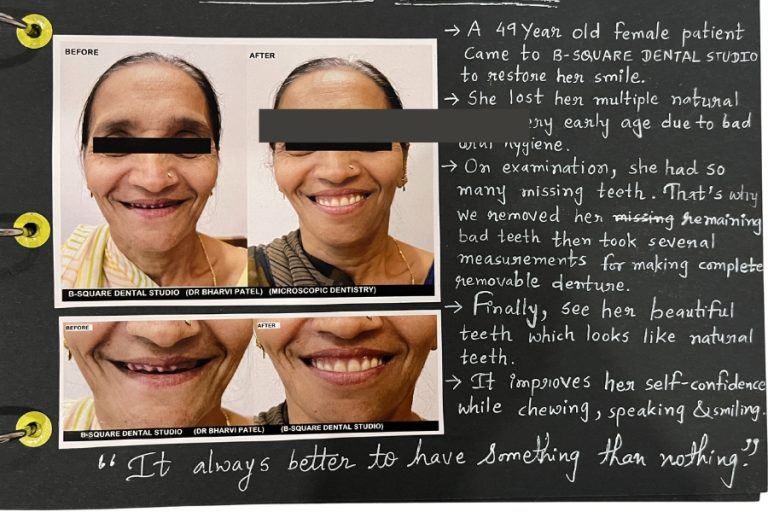 BEFORE
AFTER
B-SQUARE DENTAL STUDIO (DR BHARVI PATEL) (MICROSCOPIC DENTISTRY)
BEFORE
AFTER
B-SQUARE DENTAL STUDIO (DR BHARVI PATEL) (B-SQUARE DENTAL STUDIO)
→ A 49 Year old female patient
Came to B-SQUARE DENTAL STUDIO
to restore her smile.
→ She lost her multiple natural
early age due to bad
hygiene.
→ On examination, she had so
many missing teeth. That's why
we removed her missing remaining
bad teeth then took several
measurements for making complete
removable denture.
→ Finally, see her beautiful
teeth which looks like natural
teeth.
→ It improves her self-confidence
while chewing, speaking & smiling.
"It always better to have something than nothing."